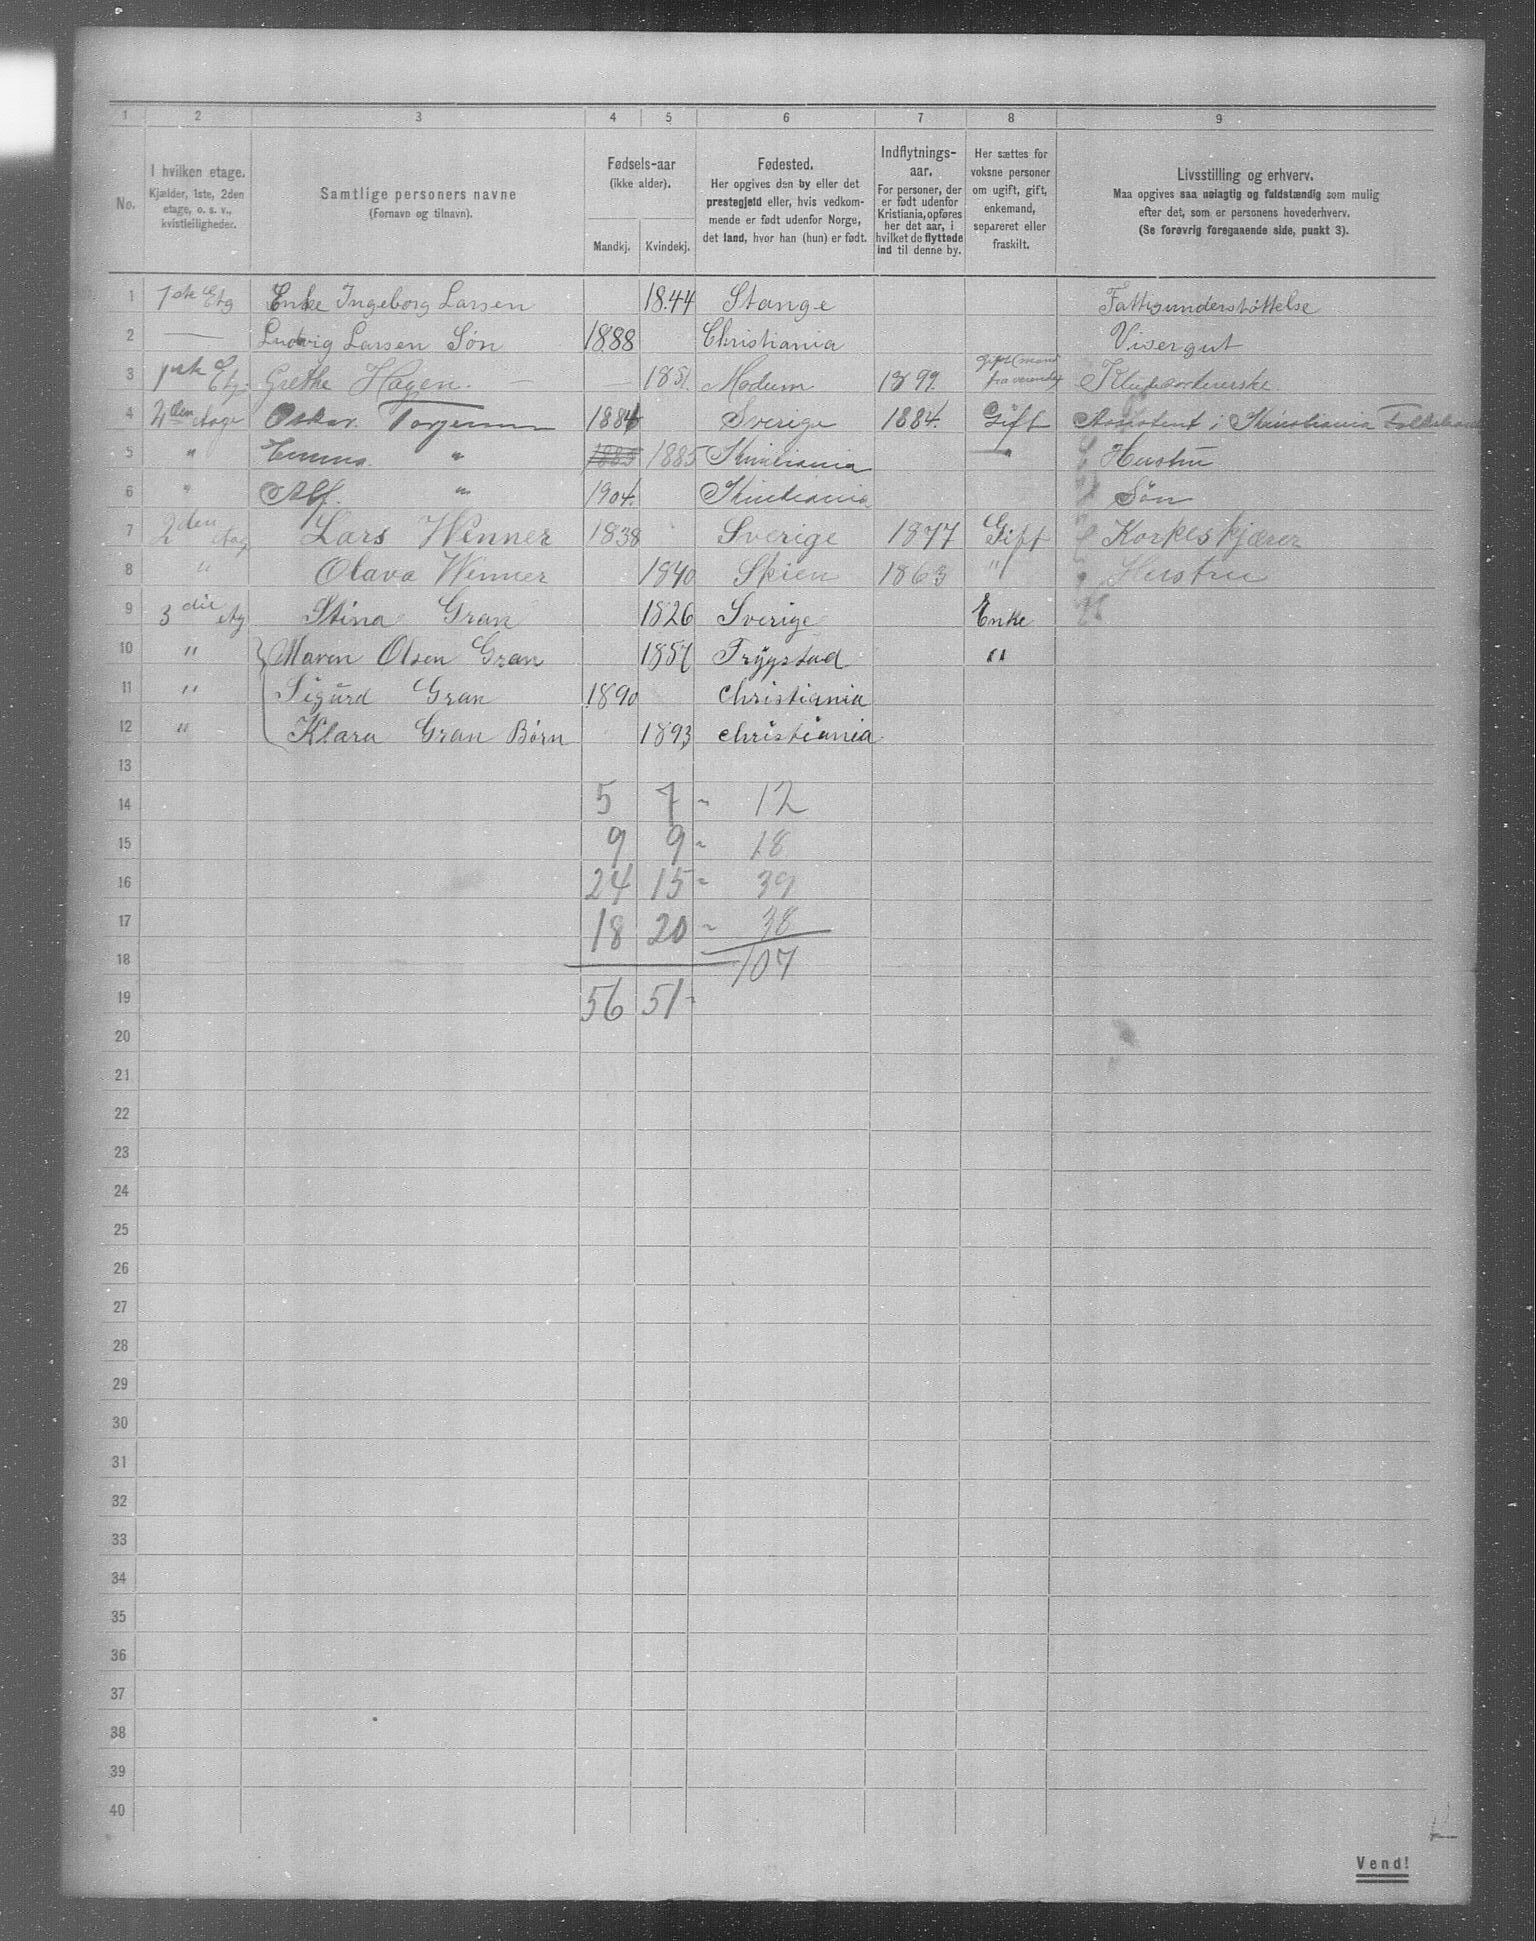 1 2 3 4 5 6 7 8 9
No.
I hvilken etage.
Kjælder, 1ste, 2den
etage, o. s. v.,
kvistleiligheder.
Samtlige personers navne
(Fornavn og tilnavn).
Fødsels-aar
(ikke alder).
Mandkj. Kvindekj.
Fødested.
Her opgives den by eller det
prestegjeld eller, hvis vedkom-
mende er født udenfor Norge,
det land, hvor han (hun) er født.
Indflytnings-
aar.
For personer, der
er født udenfor
Kristiania, opføres
her det aar, i
hvilket de flyttede
ind til denne by.
Her sættes for
voksne personer
om ugift, gift,
enkemand,
separeret eller
fraskilt.
Livsstilling og erhverv.
Maa opgives saa nøiagtig og fuldstændig som mulig
efter det, som er personens hovederhverv.
(Se forøvrig foregaaende side, punkt 3).
1 1ste Etg Enke Ingeborg Larsen 1844 Stange Fattigunderstøttelse
2 — Ludvig Larsen Søn 1888 Christiania Visergut
3 1ste Etg. Grethe Hagen. — — 1851. Modum 1899 gift (mand
4 2den Etage Oskar Torgersen 1884 Sverige 1884. Gift Assistent i Kristiania
5 " Emma " 1885 1885 Kristiania " Hustru
6 " Alf. " 1904. Kristiania Søn
7 2den Etag Lars Wenner 1838 Sverige 1877 Gift Korkeskjærer
8 " Olava Wenner 1840 Skien 1863 " Hustru
9 3die etg Stina Gran 1826 Sverige Enke
10 " Maren Olsen Gran 1857 Trygstad "
11 " Sigurd Gran 1890 Christiania
12 " Klara Gran Børn 1893 christiania
13
14 5 7 - 12
15 9 9 - 18
16 24 15 - 39
17 18 20 - 38
18 107
19 56 51 -
20
21
22
23
24
25
26
27
28
29
30
31
32
33
34
35
36
37
38
39
40
Vend!